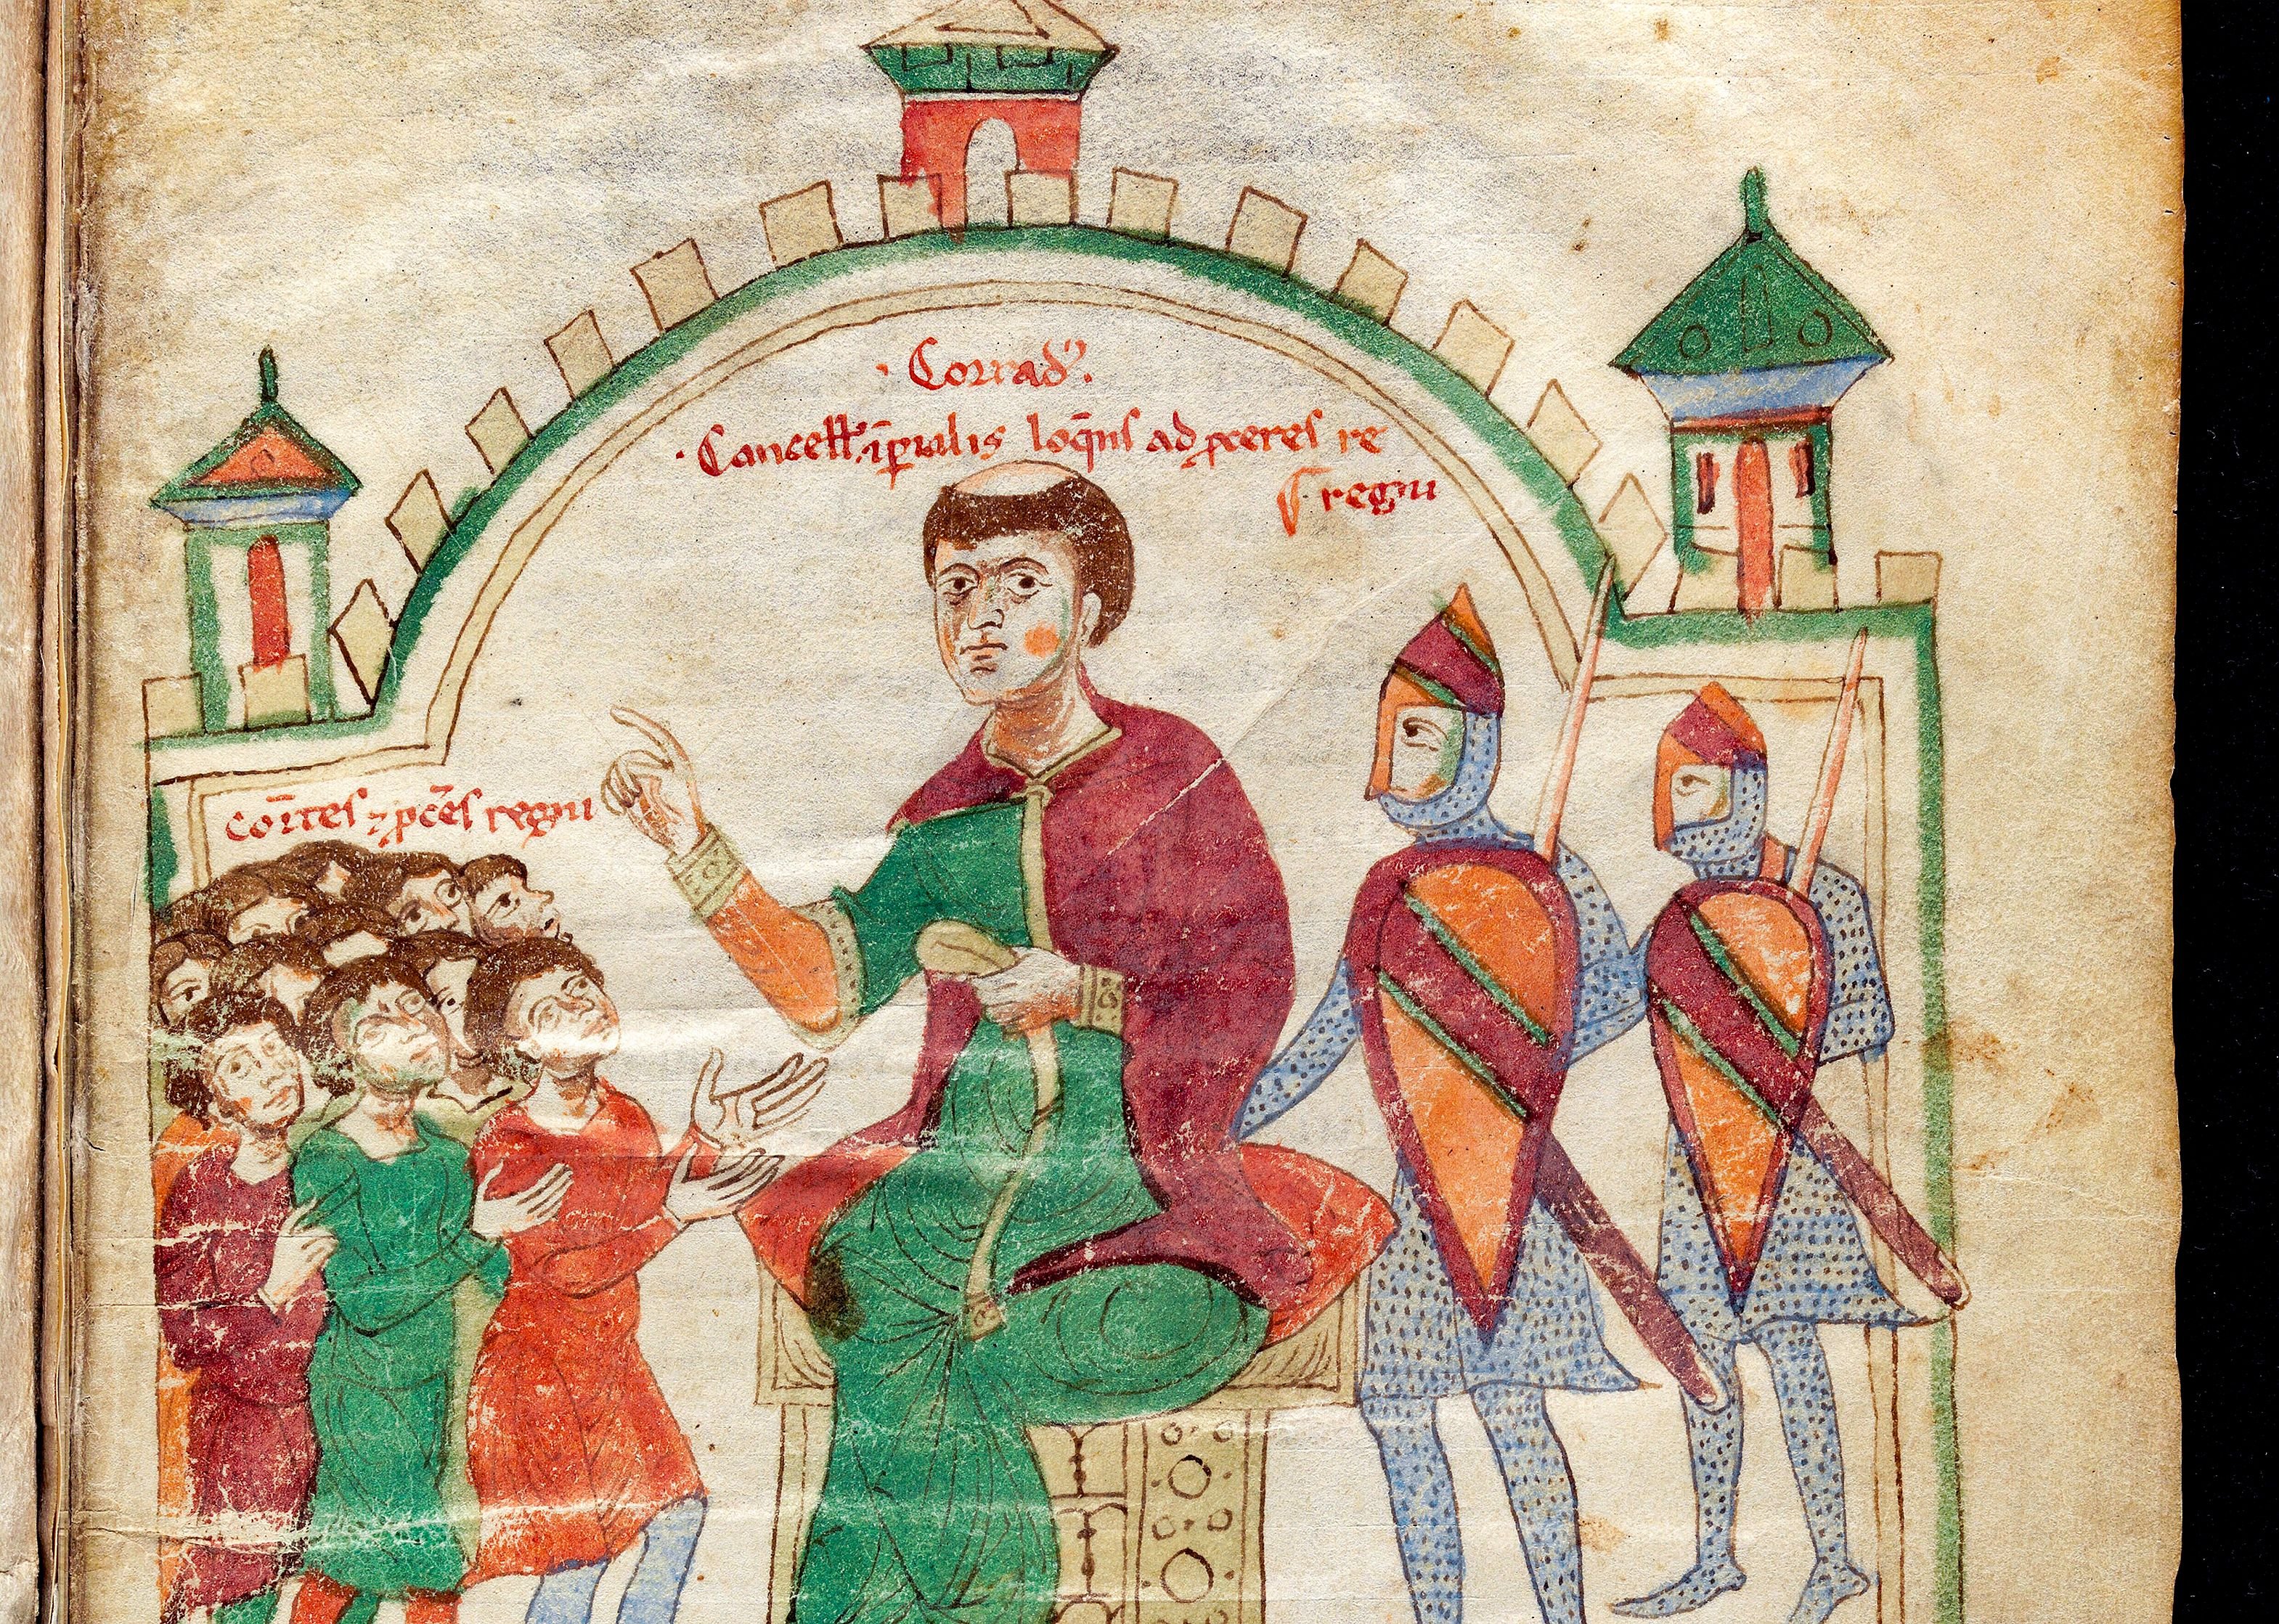 · Corrad᷒.
· Cancell᷒. īꝑialis loq̄ns ad ꝓceres re
ſ regni
Comītes ⁊ ꝓce᷒s regni